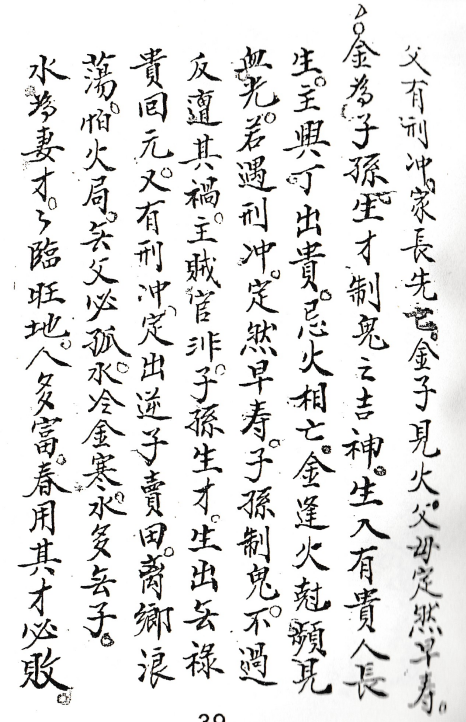 父有刑冲。家長先亡。金子見火。父母定然早寿。
金為子孫。生才制鬼之吉神。生入有貴人長
生。主興丁出貴。忌火相亡。金逢火尅。頻見
血光。若遇刑冲。定然早寿。子孫制鬼。不過
反遭其禍。主賊官非。子孫生才。生出无祿
貴回元。又有刑冲。定出逆子賣田。离鄉浪
蕩。怕火局。无父必孤。水冷金寒。水多无子。
水為妻才。々臨旺地。人多富。春用其才必敗。
39